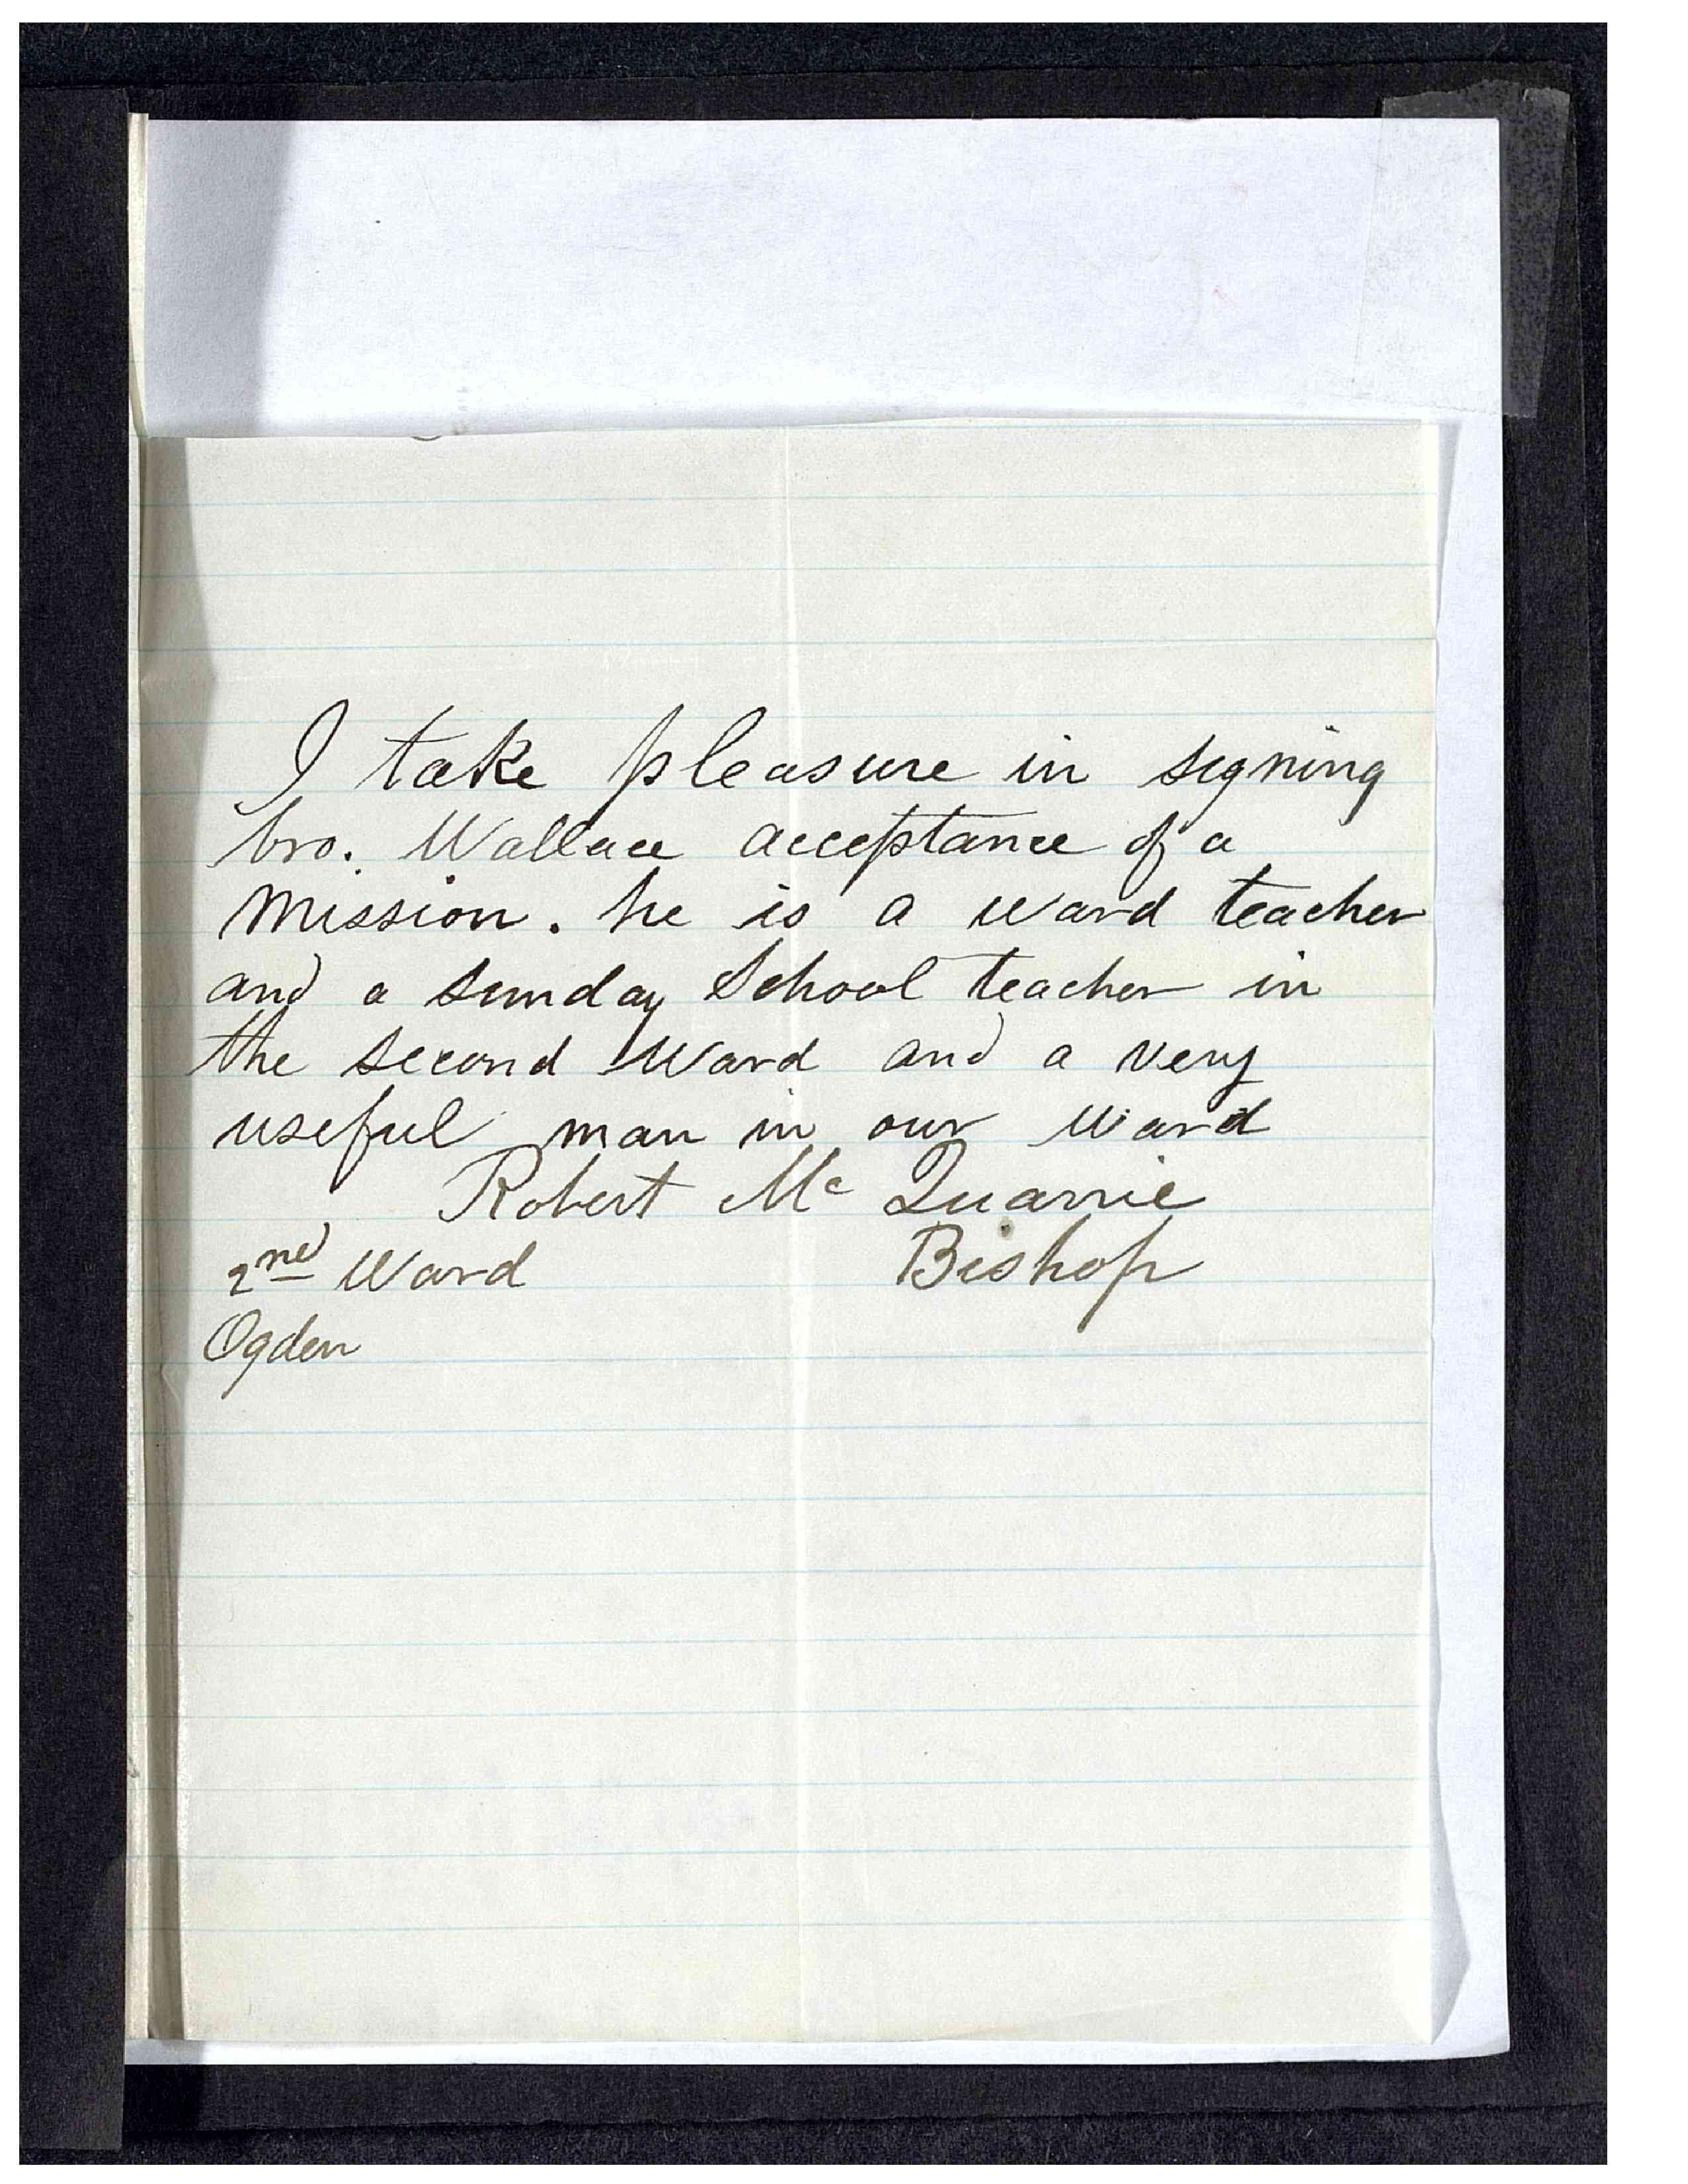 I take pleasure in signing
bro. Wallace acceptance of a
mission. he is a ward teacher
and a sunday School teacher in
the second Ward and a very
useful man in our Ward
Robert Mc Quarrie
2nd Ward Bishop
Ogden